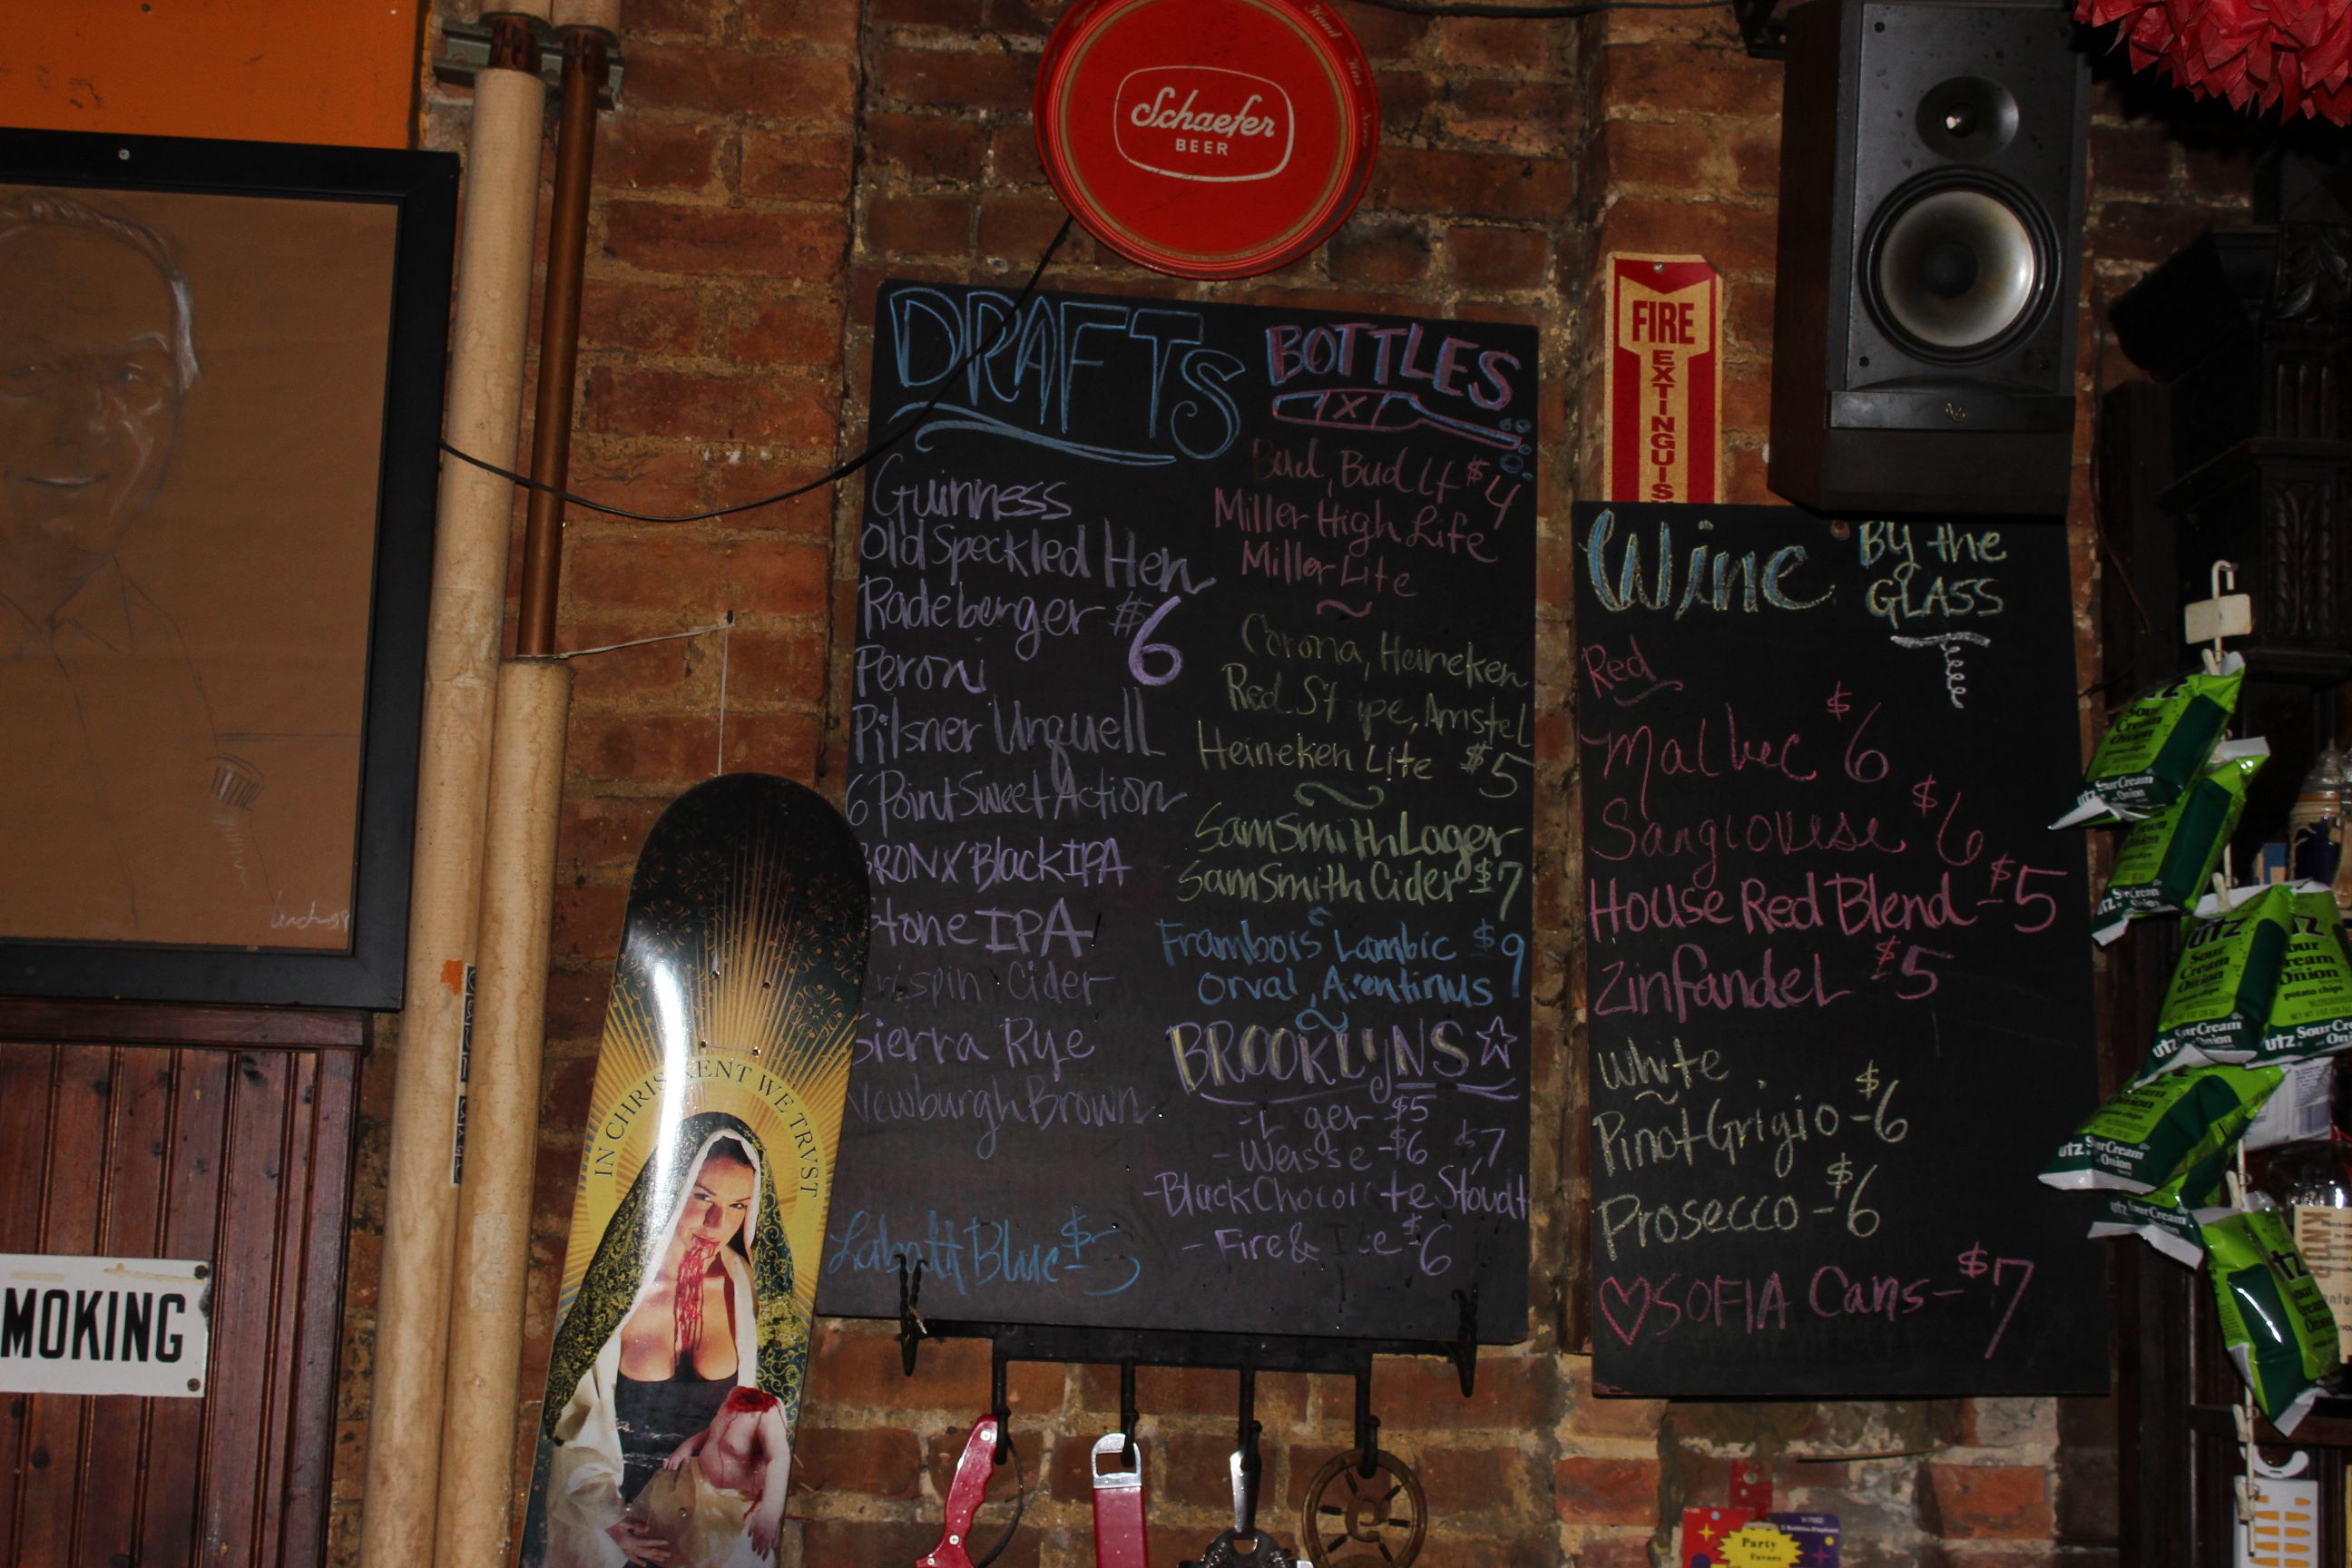 Schaefer
BEER
DRAFTS
Guinness
Old Speckled Hen
Radeberger $6
Peroni
Pilsner Urquell
6 Point Sweet Action
BRONX Black IPA
Stone IPA
rispin Cider
Sierra Rye
Newburgh Brown
Labatt Blue $3
BOTTLES
Bud, Bud Lt $4
Miller High Life
Miller Lite
Corona, Heineken
Red St ipe, Amstel
Heineken Lite $5
Sam Smith Lager
Sam Smith Cider $7
Frambois Lambic $9
Orval, A entinus
BROOKLYNS
-L ger $5
- Weisse -$6 $7
-Black Chocol te Stoudt
- Fire & I e $6
FIRE
EXTINGUIS
Wine By the
GLASS
Red
Malbec $6
Sangiovese $6
House Red Blend -$5
Zinfandel $5
White
Pinot Grigio -$6
Prosecco -$6
SOFIA Cans -$7
IN CHRIS KENT WE TRVST
MOKING
UTZ
Sour
Cream
Onion
potato chips
Party
Favors